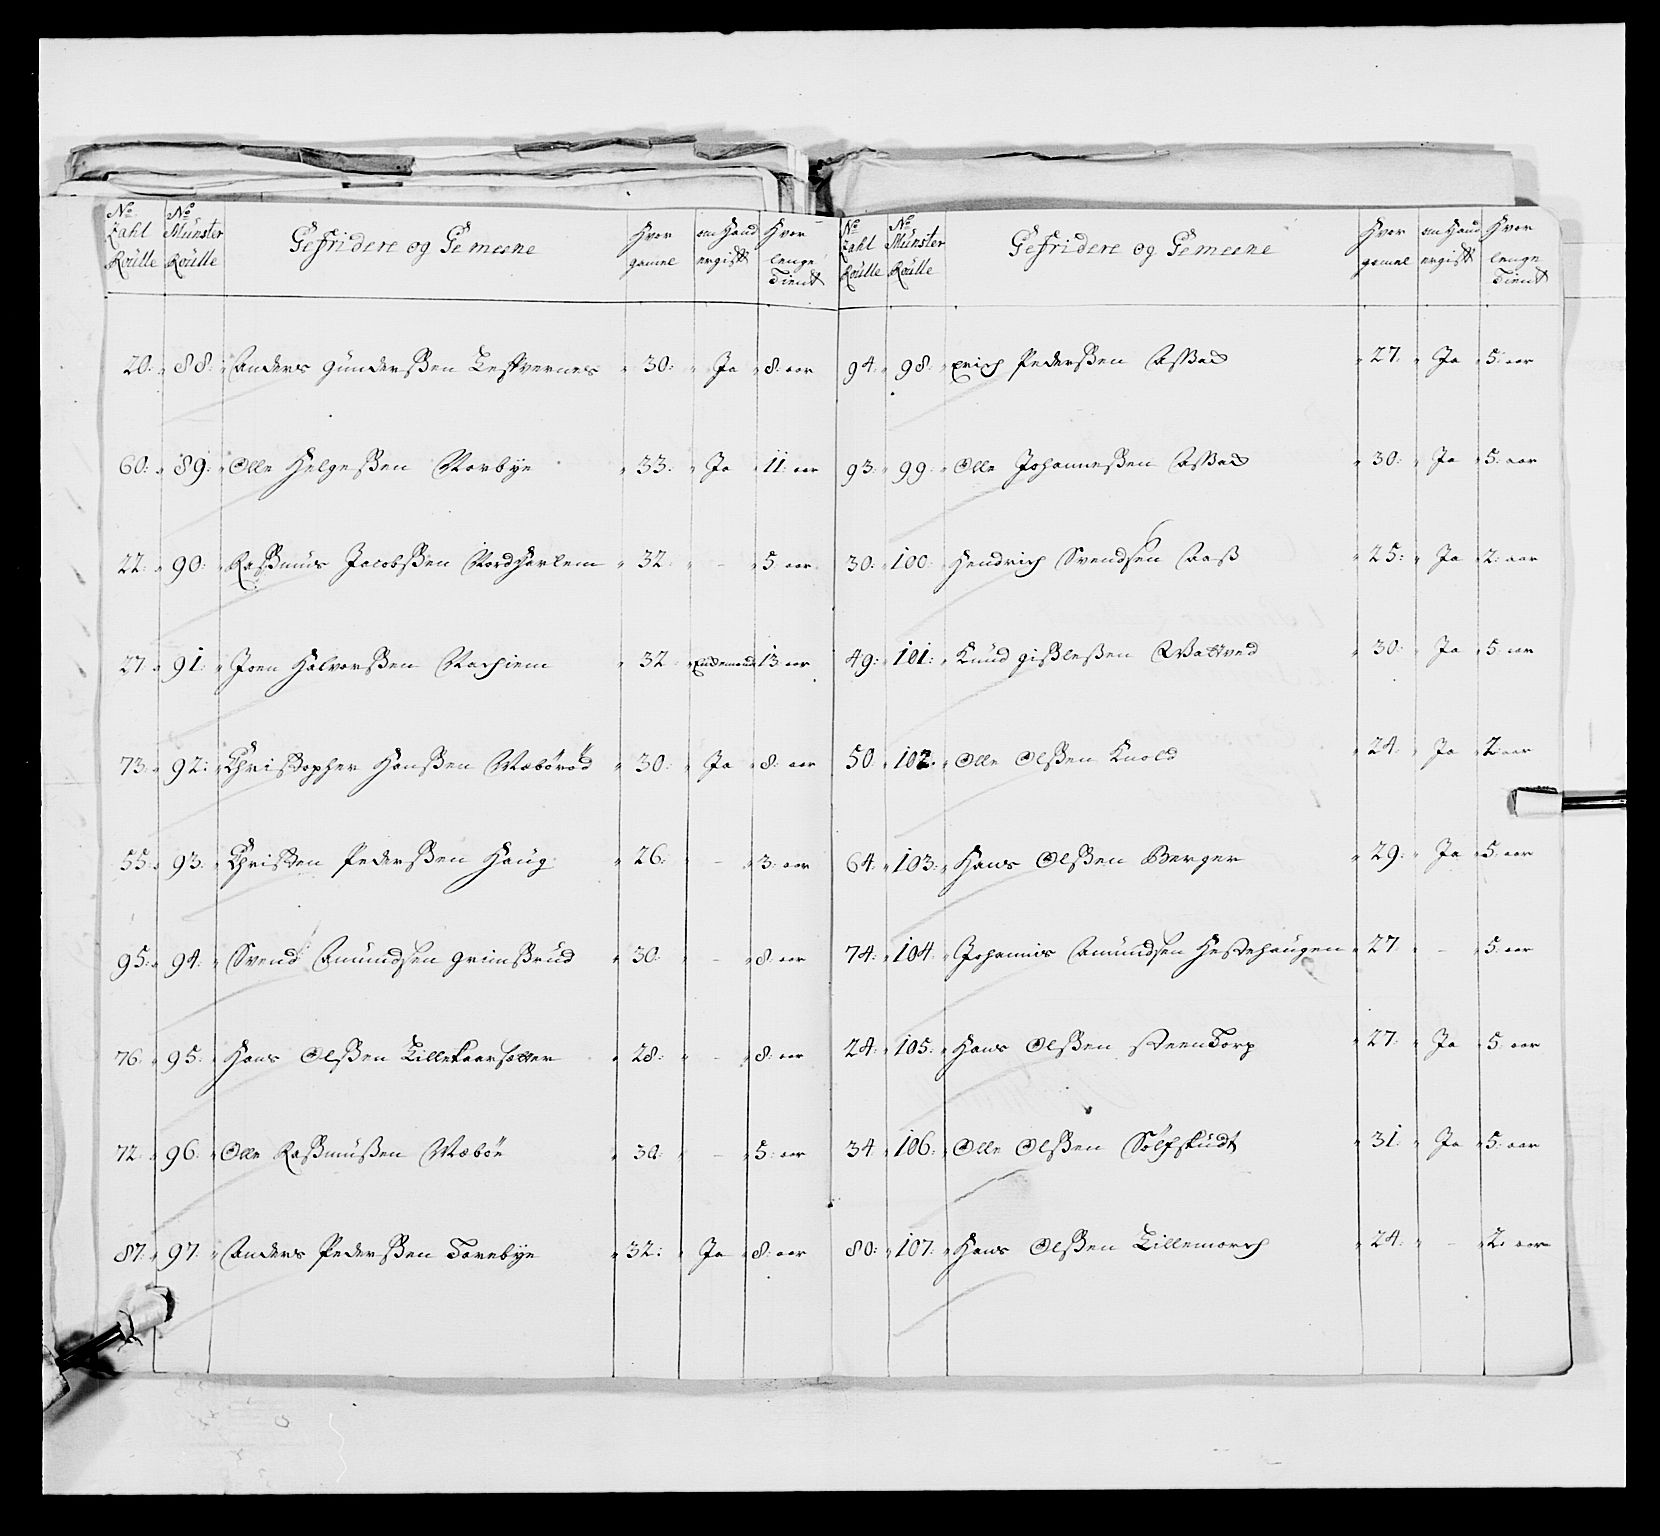 No Zahl Roulle | No Münster Roulle | Gefridere og Gemeene | Hvor gamel | om Hand er gift | Hvor lenge Tient
20: 88: Anders Gunderßen Testvernes 30: Ja 8: aar
60: 89: Olle Helgeßen Norbye 33: Ja 11: aar
22: 90: Raßmus Jacobßen Nordharlem 32 - 5 aar
27: 91: Joen Halvorßen 32 Enckemand 13: aar
73: 92: Christopher Hanßen Wæbörød 30: Ja 8: aar
55: 93: Christen Pederßen Haug 26: - 3: aar
95: 94: Svend Amundsen Grimsrud 30: - 8: aar
76: 95: Hans Olßen 28: - 8: aar
72: 96: Olle Raßmußen Wæbön 30: - 5: aar
87: 97: Anders Pederßen Torebye 32: Ja 8: aar
No Zahl Roulle | No Münster Roulle | Gefridere og Gemeene | Hvor gamel | om Hand er gift | Hvor lenge Tient
94: 98: Erich Pederßen Aßbad 27: Ja 5: aar
93: 99: Olle Johanneßen Aßbad 30: Ja 5: aar
30: 100: Hendrich Svendsen Aaß 25: Ja 2: aar
49: 101: Knud Gißleßen Wattved 30: Ja 5: aar
50 102: Olle Olßen Knold 24: Ja 2: aar
64: 103: Hans Olßen Berger 29: Ja 5: aar
74: 104: Johannis Amundsen Hestehaugen 27 - 5: aar
24: 105: Hans Olßen Steentorp 27: Ja 5: aar
34 106: Olle Olßen Sölfskudt 31: Ja 5: aar
80: 107: Hans Olßen Lillemorch 24: - 2: aar